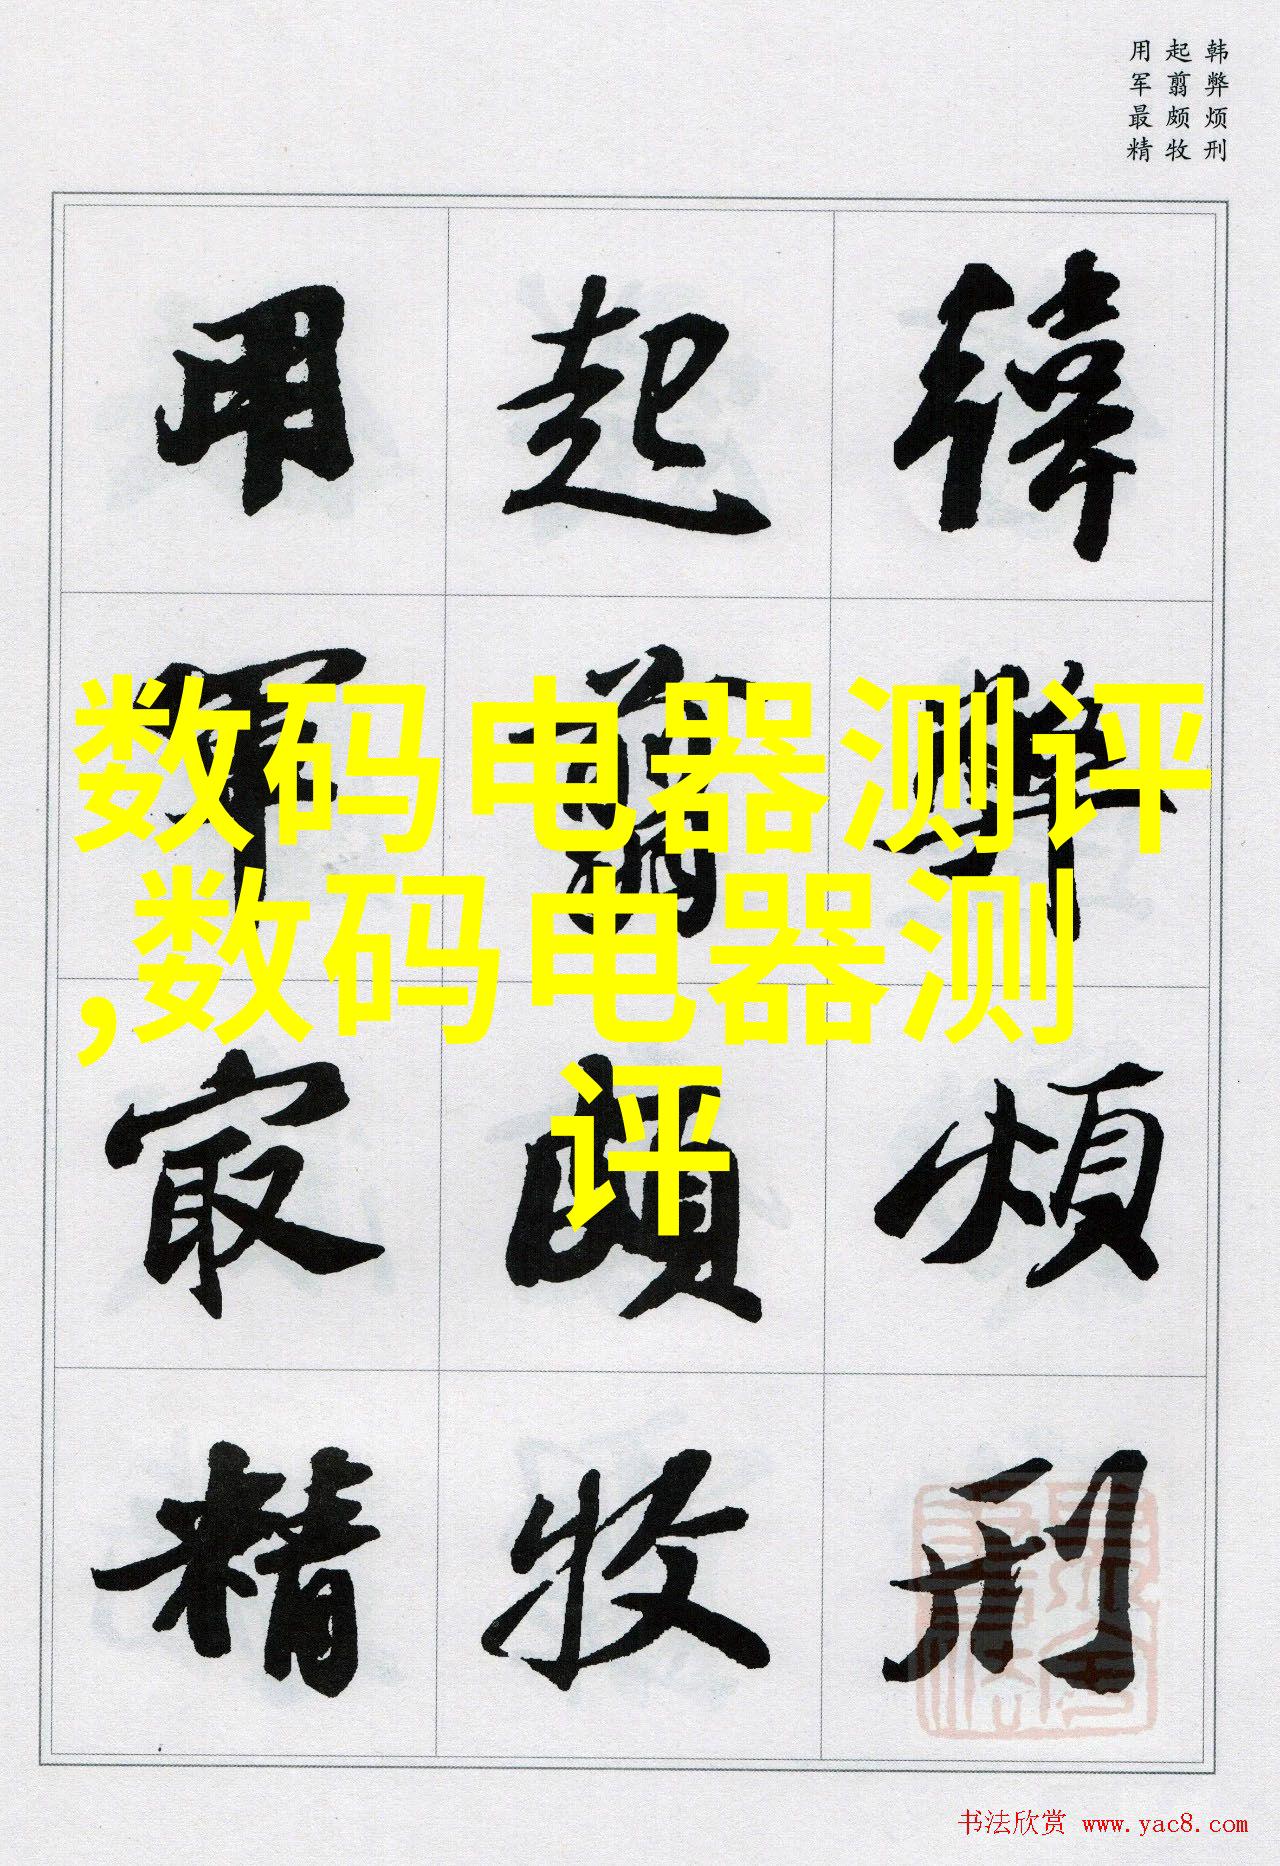 韩弊烦刑
起翦颇牧
用军最精
韓弊煩刑
起翦頗牧
用軍最精
数码电器测评
,数码电器测
评
书法欣赏 www.yac8.com